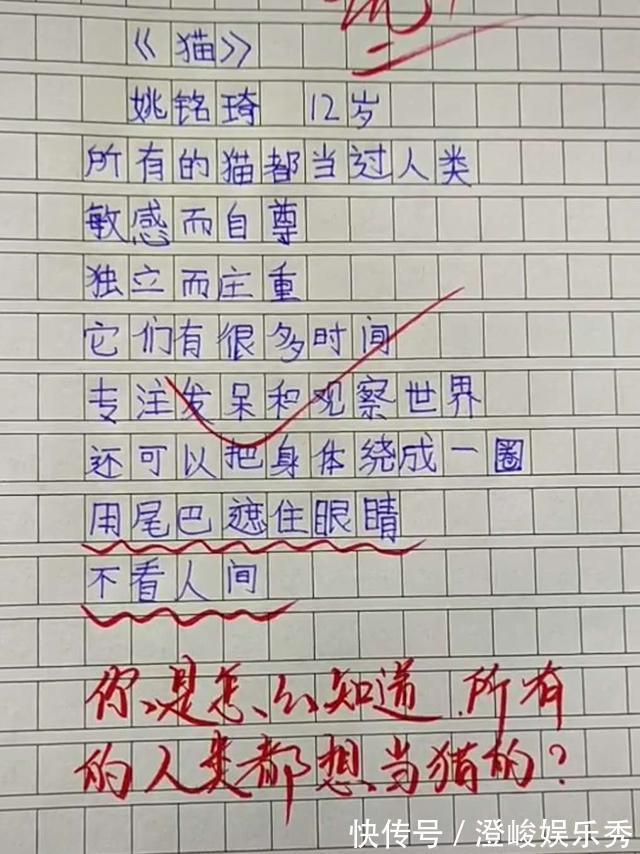 《猫》
姚铭琦 12岁
所有的猫都当过人类
敏感而自尊
独立而庄重
它们有很多时间
专注发呆和观察世界
还可以把身体绕成一圈
用尾巴遮住眼睛
不看人间
你是怎么知道所有
的人类都想当猫的?
快传号/澄峻娱乐秀